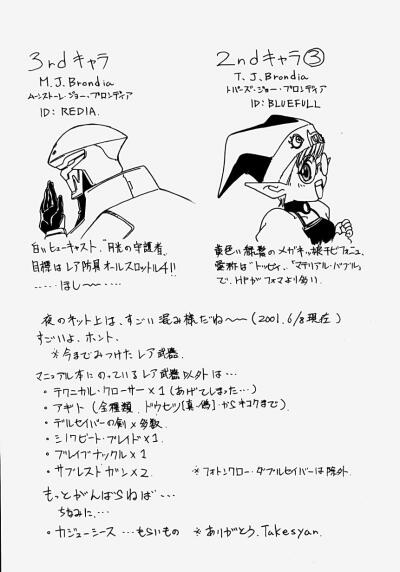 3rdキャラ
M.J.Brondia
ムーンストーレ・ジョー・ブロンディア
ID: REDIA.
2ndキャラ③
T.J.Brondia
トパーズ・ジョー・ブロンディア
ID: BLUEFULL
白いヒューキャスト、"月光の守護者、
目標はレア防具オールスロットル4!!
・・・・・ほし〜〜・・・・
黄色い緑髪のメガネッ娘チビフォニュ、
愛称は「トッピィ」、「マテリアル・バブル」
で、HPがフォマより多い。
夜のネット上は、すごい混み様だね〜〜(2001.6/8現在)
すごいよ、ホント。
※今までみつけたレア武器。
マニュアル本にのっているレア武器以外は・・・
・テクニカル・クローサー×1(あげてしまった・・・)
・アギト(全種類、ドウセツ[真・偽]からキコクまで)
・デルセイバーの剣×多数。
・シノワビート・ブレイド×1.
・ブレイブナックル×1
・サプレストガン×2.
※フォトンクロー・ダブルセイバーは除外.
もっとがんばらねば・・・
ちなみに・・・
・カジューシース・・・もらいもの ※ありがとう、Takesyan.